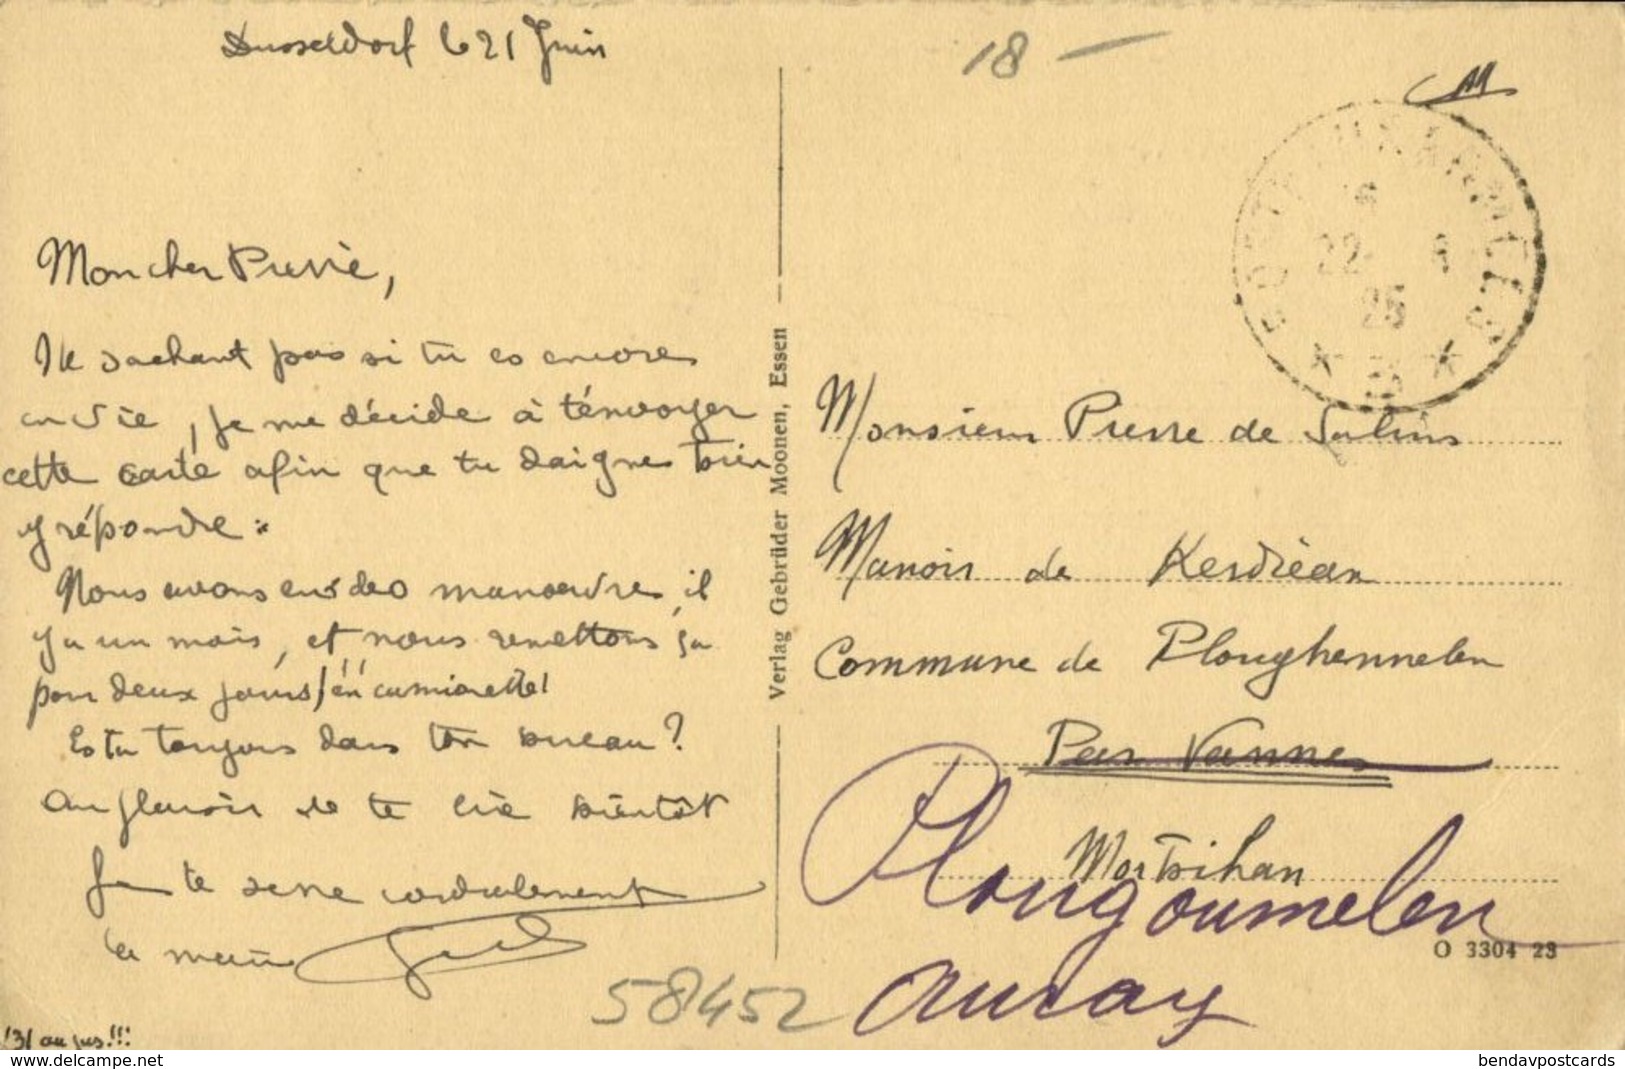 Dusseldorf le 21 Juin
Mon cher Pierre,
Ne sachant pas si tu es encore
en vie, je me décide à t'envoyer
cette carte afin que tu daignes bien
y répondre.
Nous avons eu des manoeuvres, il
y a un mois, et nous remettons ça
pour deux jours
Es tu toujours dans ton bureau?
Au plaisir de te lire bientôt
Je te serre cordialement
la main
131 au jus!!!
Verlag Gebrüder Moonen, Essen
18 -
22 6
25
Monsieur Pierre de Salins
Manoir de Kerdréan
Commune de Ploughennelen
Par Vannes
Morbihan
Plougoumelen
Auray
O 3304 23
58452
bendavpostcards.com
bendavpostcards